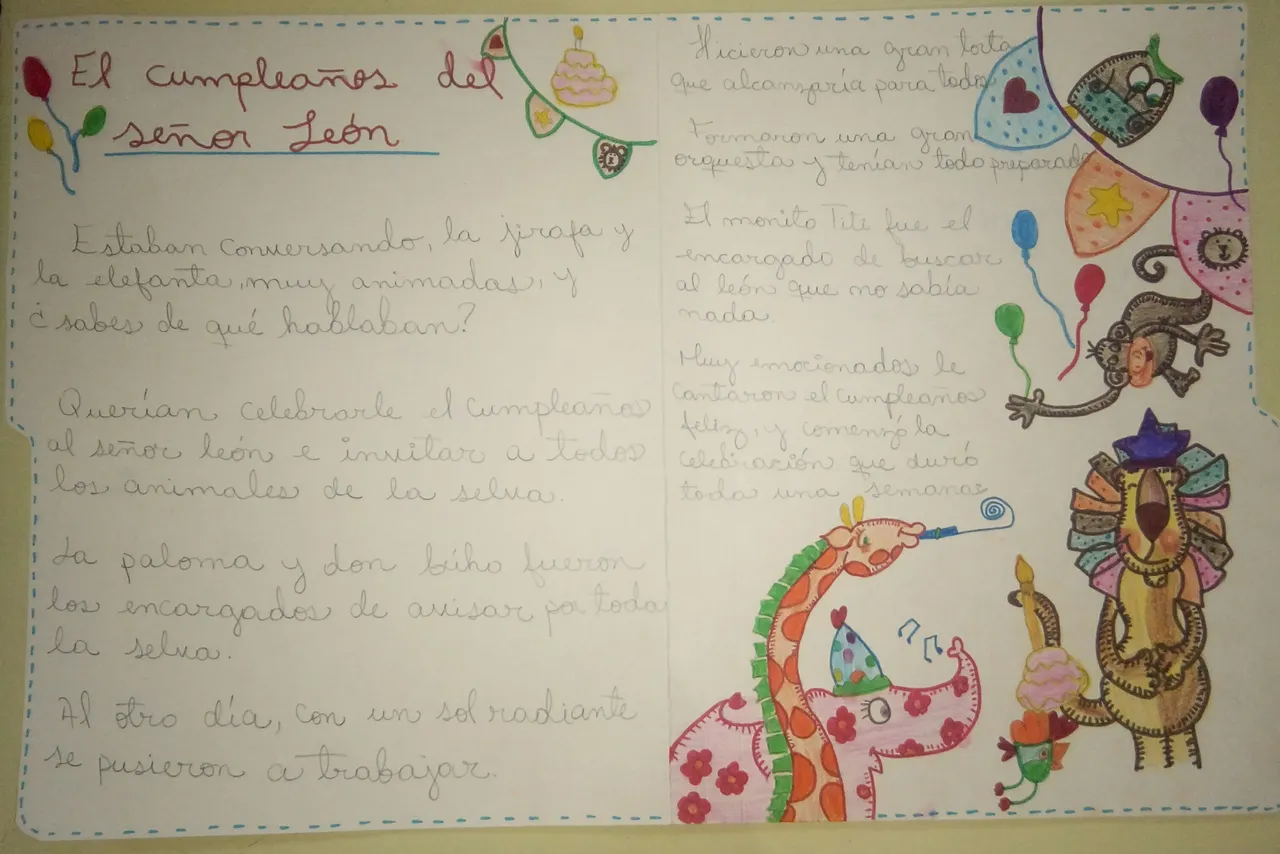 El cumpleaños del
señor León
Estaban conversando, la jirafa y
la elefanta, muy animadas, y
¿sabes de qué hablaban?
Querían celebrarle el cumpleaños
al señor león e invitar a todos
los animales de la selva.
La paloma y don búho fueron
los encargados de avisar pa toda
la selva.
Al otro día, con un sol radiante
se pusieron a trabajar.
Hicieron una gran torta
que alcanzaría para todos
Formaron una gran
orquesta y tenían todo preparado
El monito Tite fue el
encargado de buscar
al león que no sabía
nada.
Muy emocionados le
cantaron el cumpleaños
feliz, y comenzó la
celebración que duró
toda una semana